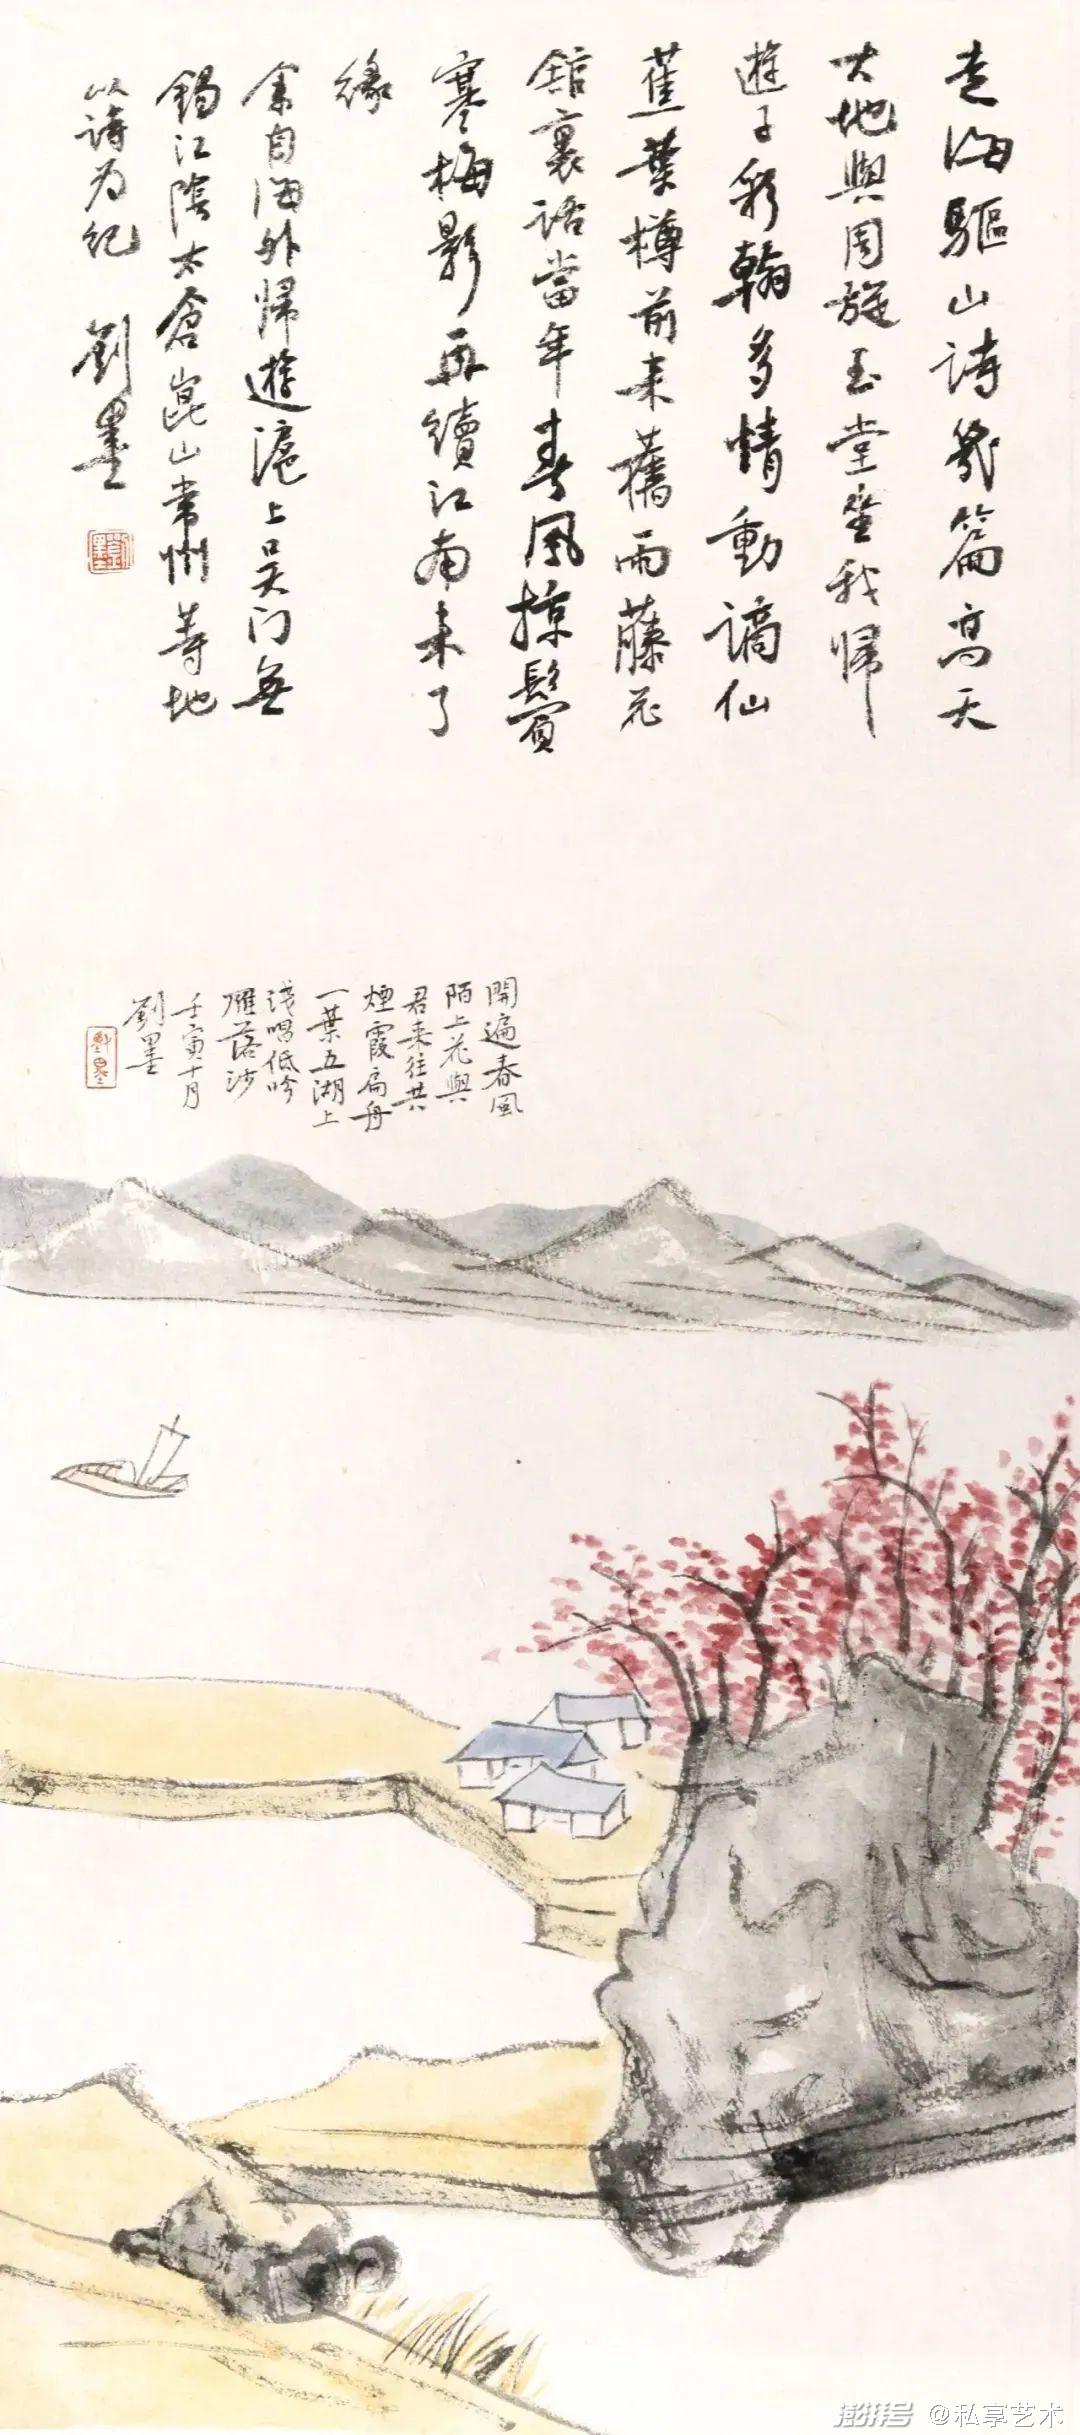 走海驅山詩幾篇高天
大地與周旋玉堂坐我歸
遊子彩翰多情動謫仙
蕉葉樽前來舊雨藤花
館裏話當年春風掠鬢
寒梅影再續江南未了
緣
余自海外歸遊滬上吳门無
錫江陰太倉崑山常州等地
以詩为紀 劉墨
劉墨
開遍春風
陌上花與
君来往共
煙霞扁舟
一葉五湖上
淺唱低吟
雁落沙
壬寅十月
劉墨
劉墨
澎湃号 @私享艺术